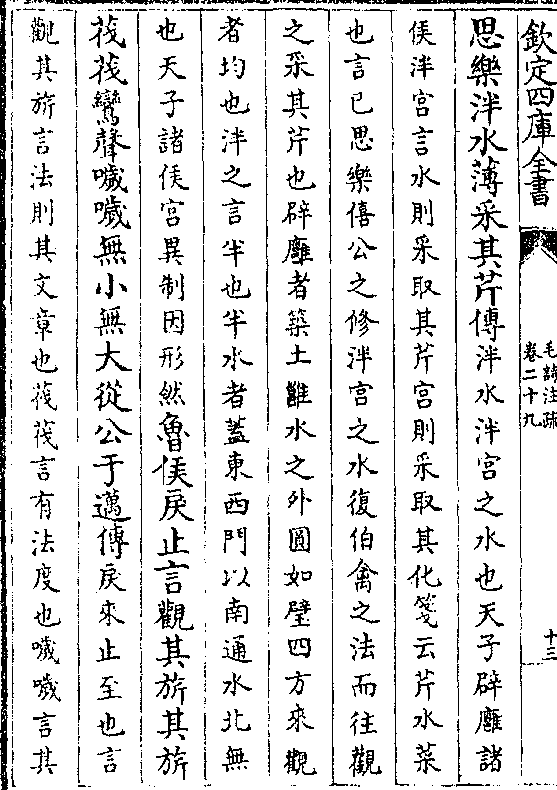 欽定四庫全書
毛詩注疏
卷二十九
十三
思樂泮水薄采其芹傳泮水泮宮之水也天子辟廱諸
侯泮宮言水則采取其芹宮則采取其化箋云芹水菜
也言已思樂僖公之修泮宮之水復伯禽之法而往觀
之采其芹也辟廱者築土雝水之外圓如璧四方來觀
者均也泮之言半也半水者蓋東西門以南通水北無
也天子諸侯宮異制因形然魯侯戾止言觀其旂其旂
筏筏鸞聲噦噦無小無大從公于邁傳戾來止至也言
觀其旂言法則其文章也筏筏言有法度也噦噦言其